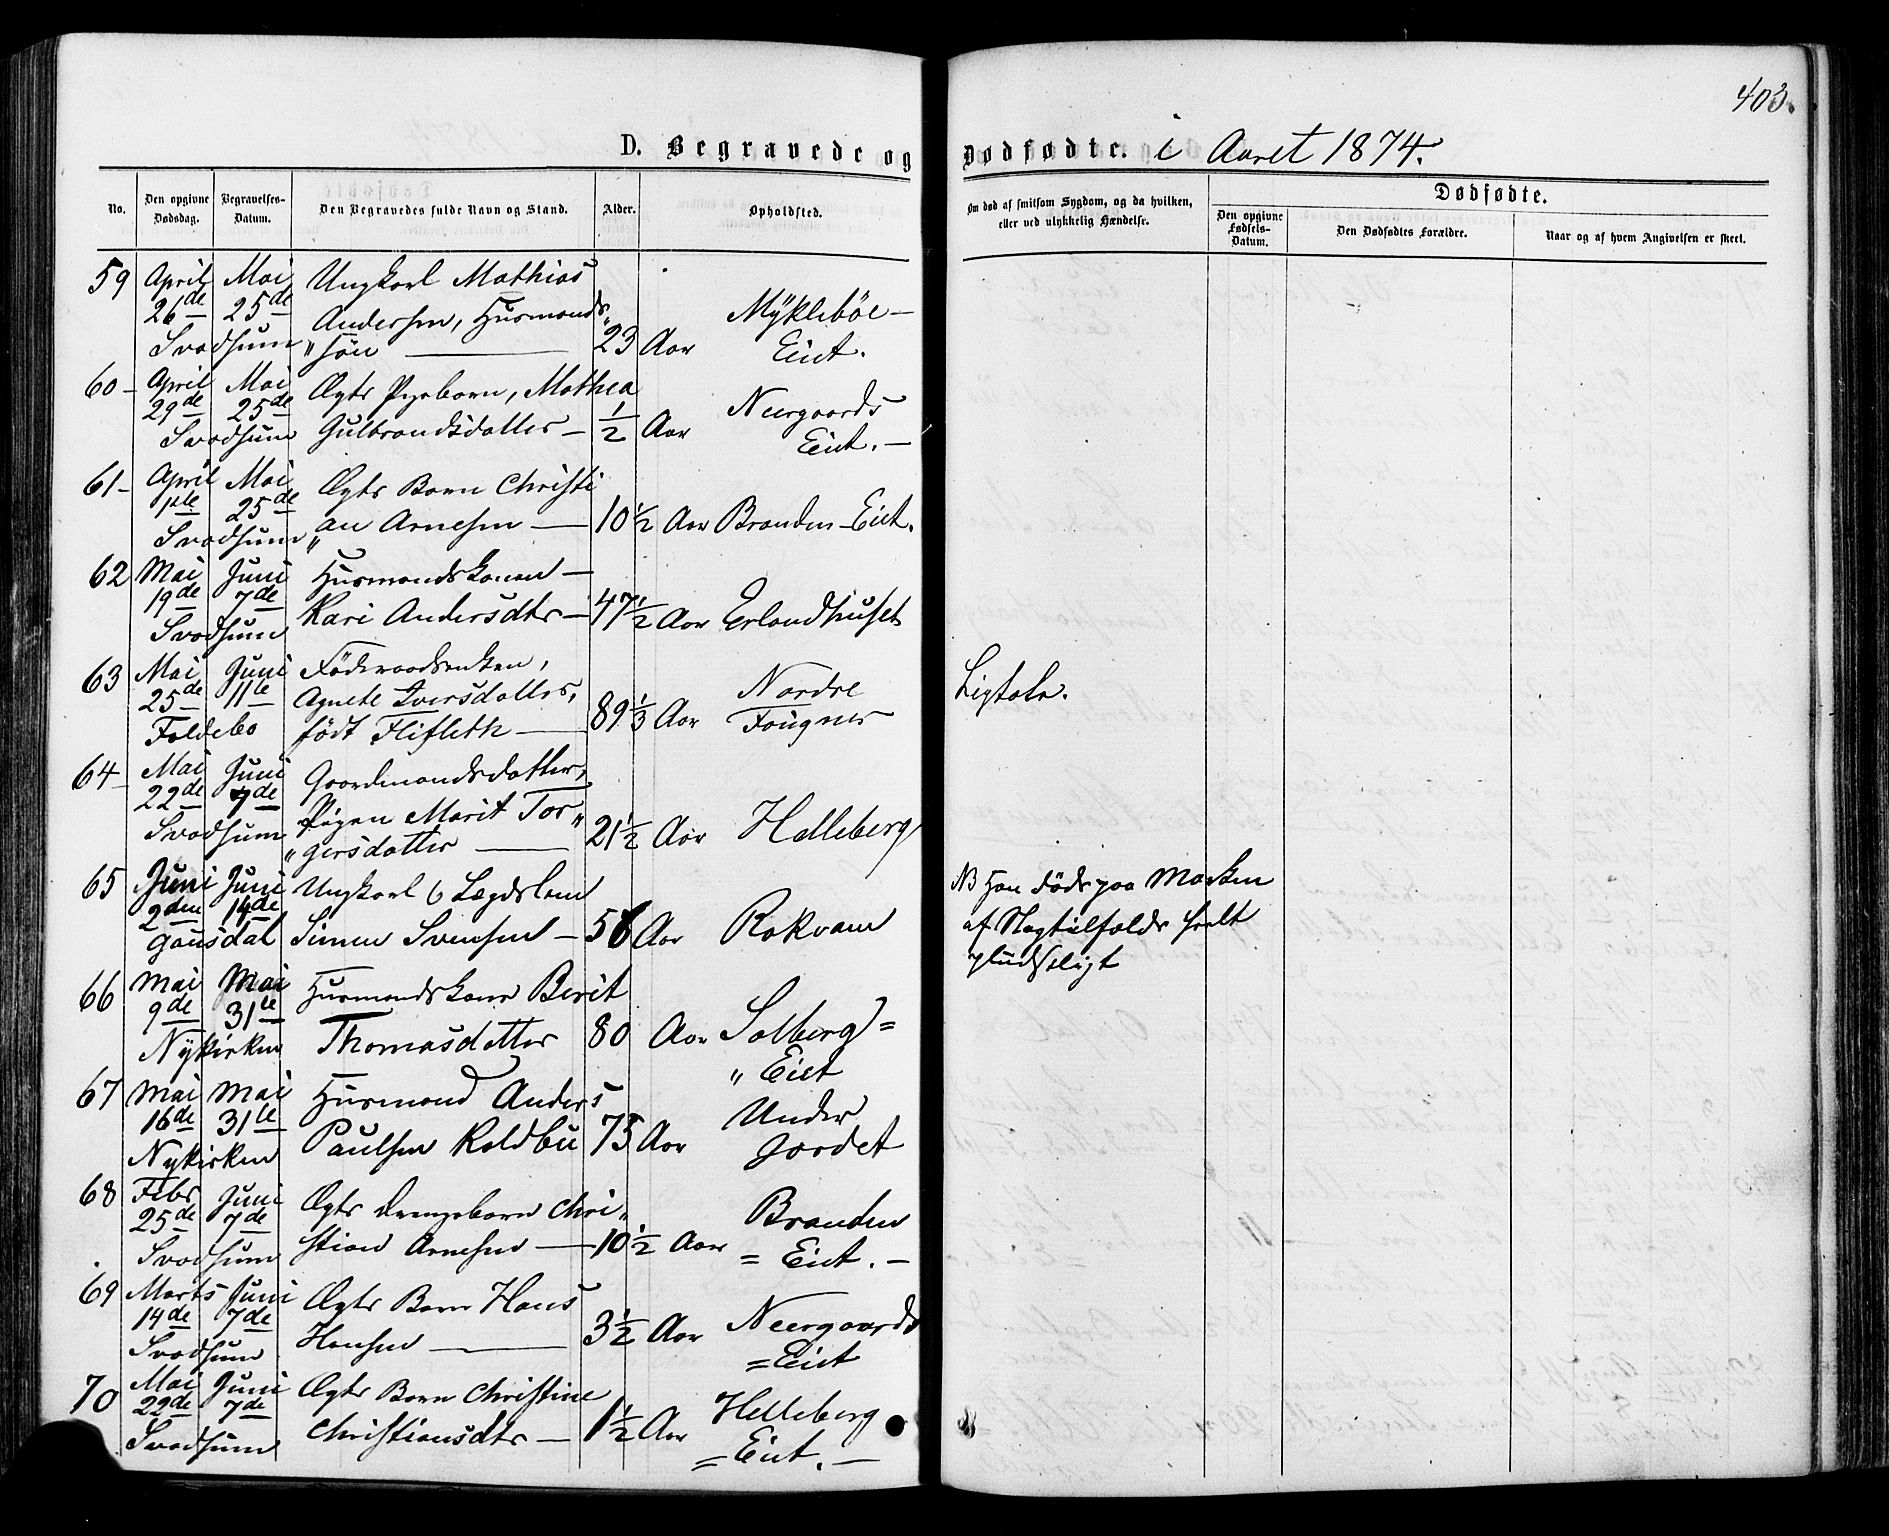 403.
D. Begravede og Dødfødte. i Aaret 1874.
No.
Den opgivne Dødsdag.
Begravelses-Datum.
Den Begravedes fulde Navn og Stand.
Alder.
Opholdsted.
Om død af smitsom Sygdom, og da hvilken, eller ved ulykkelig Hændelse.
Dødfødte.
Den opgivne Fødsels-Datum.
Den Dødfødtes Forældre.
Naar og af hvem Angivelsen er skeet.
59 April Mai Ungkarl Mathias
26de 25de Andersen, Husmands„ 23 Aar Myklebøe-
Svadsum „søn — Eiet.
60- April Mai Ægte Pigebarn, Mathea
29de 25de Gulbrandsdatter — 1/2 Aar Neergaards
Svadsum Eiet. —
61- April Mai Ægte Barn Christi
1ste 25de „an Arnesen — 10 1/2 Aar Branden-Eiet.
Svadsum
62 Mai Juni Husmandskonen —
19de 7de Kari Andersdtr — 47 1/2 Aar Erlandhuset
Svadsum
63 Mai Juni Føderaadsenken,
25de 11te Agnete Iversdatter, Nordre
Foldebo født Flifleth — 89 1/3 Aar Fougner Ligtale.
64- Mai Juni Gaardmandsdatter,
22de 7de Pigen Marit Tor„
Svadsum „gersdatter — 21 1/2 Aar Helleberg
65 Juni Juni Ungkarl & Lægdslem
2den 14de Simen Svensen — 56 Aar Rokvam
Gausdal
NB Han døde paa Marken
af Slagtilfælde heelt
pludseligt
66 Mai Mai Husmandskone Berit
9de 31te Thomasdatter 80 Aar Solberg=
Nykirken „ Eiet
67 Mai Mai Husmand Anders
16de 31te Paulsen Koldbu 75 Aar Under
Nykirken Jordet
68 Febr Juni Ægte Drengebarn Chri„
25de 7de stian Arnesen — 10 1/2 Aar Branden
Svadsum = Eiet. —
69 Marts Juni Ægte Barn Hans
14de 7de Hansen — 3 1/2 Aar Neergaards
Svadsum =Eiet
70 Mai Juni Ægte Barn Christine
22de 7de Christiansdtr — 1 1/2 Aar Helleberg
Svadsum = Eiet. —